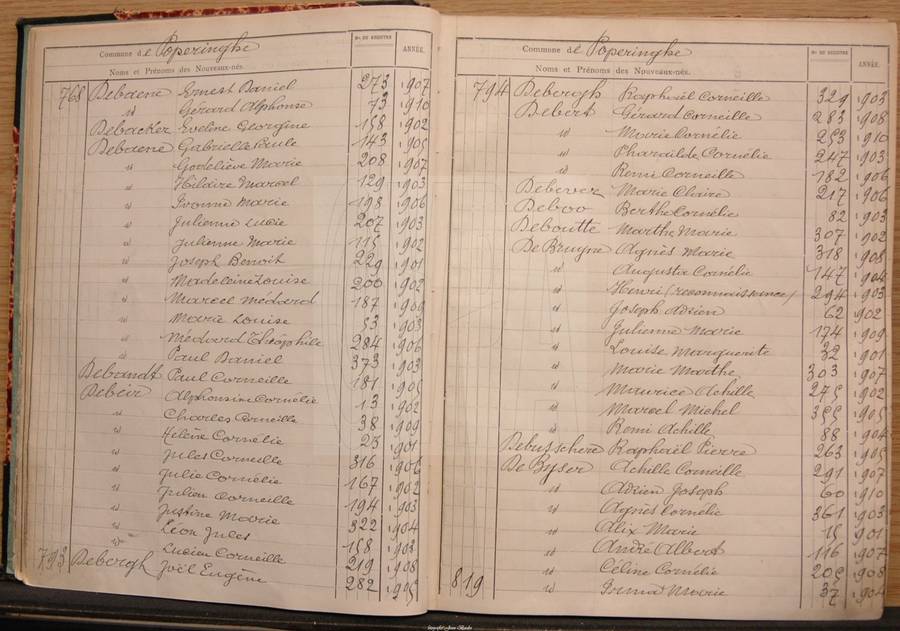 Commune de Poperinghe
Nos DU REGISTRE
ANNÉE.
Noms et Prénoms des Nouveaux-nés.
768 Debaene Ernest Daniel 273 1907
id Gérard Alphonse 73 1910
Debacker Eveline Georgine 158 1902
Debaene Gabrielle Paule 143 1905
id Godelieve Marie 208 1907
id Hilaire Marcel 129 1903
id Ivonne Marie 198 1906
id Julienne Lucie 207 1903
id Julienne Marie 115 1902
id Joseph Benoit 229 1901
id Madeleine Louise 200 1902
id Marcel Médard 187 1909
id Marie Louise 53 1903
id Médard Théophile 284 1906
id Paul Daniel 373 1903
Debandt Paul Corneille 181 1905
Debeir Alphonsine Cornélie 13 1902
id Charles Corneille 38 1909
id Helène Cornélie 23 1901
id Jules Corneille 316 1906
id Julie Cornélie 167 1902
id Julien Corneille 194 1903
id Justine Marie 322 1904
id Léon Jules 158 1903
id Lucien Corneille 219 1908
793 Debergh Joël Eugène 282 1905
Commune de Poperinghe
Nos DU REGISTRE
ANNÉE.
Noms et Prénoms des Nouveaux-nés.
794 Debergh Raphaël Corneille 329 1903
Debert Gérard Corneille 283 1908
id Marie Cornélie 253 1910
id Pharaïlde Cornélie 247 1903
id Remi Corneille 182 1906
Debever Marie Claire 217 1906
Deboo Berthe Cornélie 82 1903
Deboutte Marthe Marie 307 1902
De Bruyne Agnès Marie 318 1908
id Augusta Cornélie 147 1904
id Henri (reconnaissance) 294 1903
id Joseph Adrien 62 1902
id Julienne Marie 174 1909
id Louise Marguerite 32 1901
id Marie Marthe 303 1907
id Maurice Achille 275 1902
id Marcel Michel 355 1905
id Remi Achille 88 1904
Debusschere Raphaël Pierre 263 1905
De Byser Achille Corneille 291 1907
id Adrien Joseph 60 1910
id Agnès Cornélie 361 1903
id Alix Marie 15 1901
id André Albert 116 1907
id Céline Cornélie 205 1908
819 id Irma Marie 37 1904